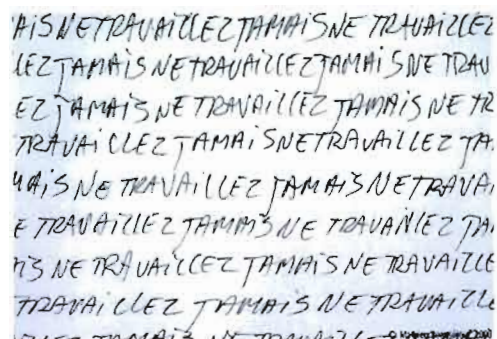 AiS NE TRAVAiLLEZ JAMAiS NE TRAVAiLLEZ
LEZ JAMAiS NE TRAVAiLLEZ JAMAiS NE TRAV
EZ JAMAiS NE TRAVAiLLEZ JAMAiS NE TR
TRAVAiLLEZ JAMAiS NE TRAVAiLLEZ JA
MAiS NE TRAVAiLLEZ JAMAiS NE TRAVA
E TRAVAiLLEZ JAMAiS NE TRAVAiLLEZ JA
iS NE TRAVAiLLEZ JAMAiS NE TRAVAiLLE
TRAVAiLLEZ JAMAiS NE TRAVAiLL
LLEZ JAMAiS NE TRAVAiLLE